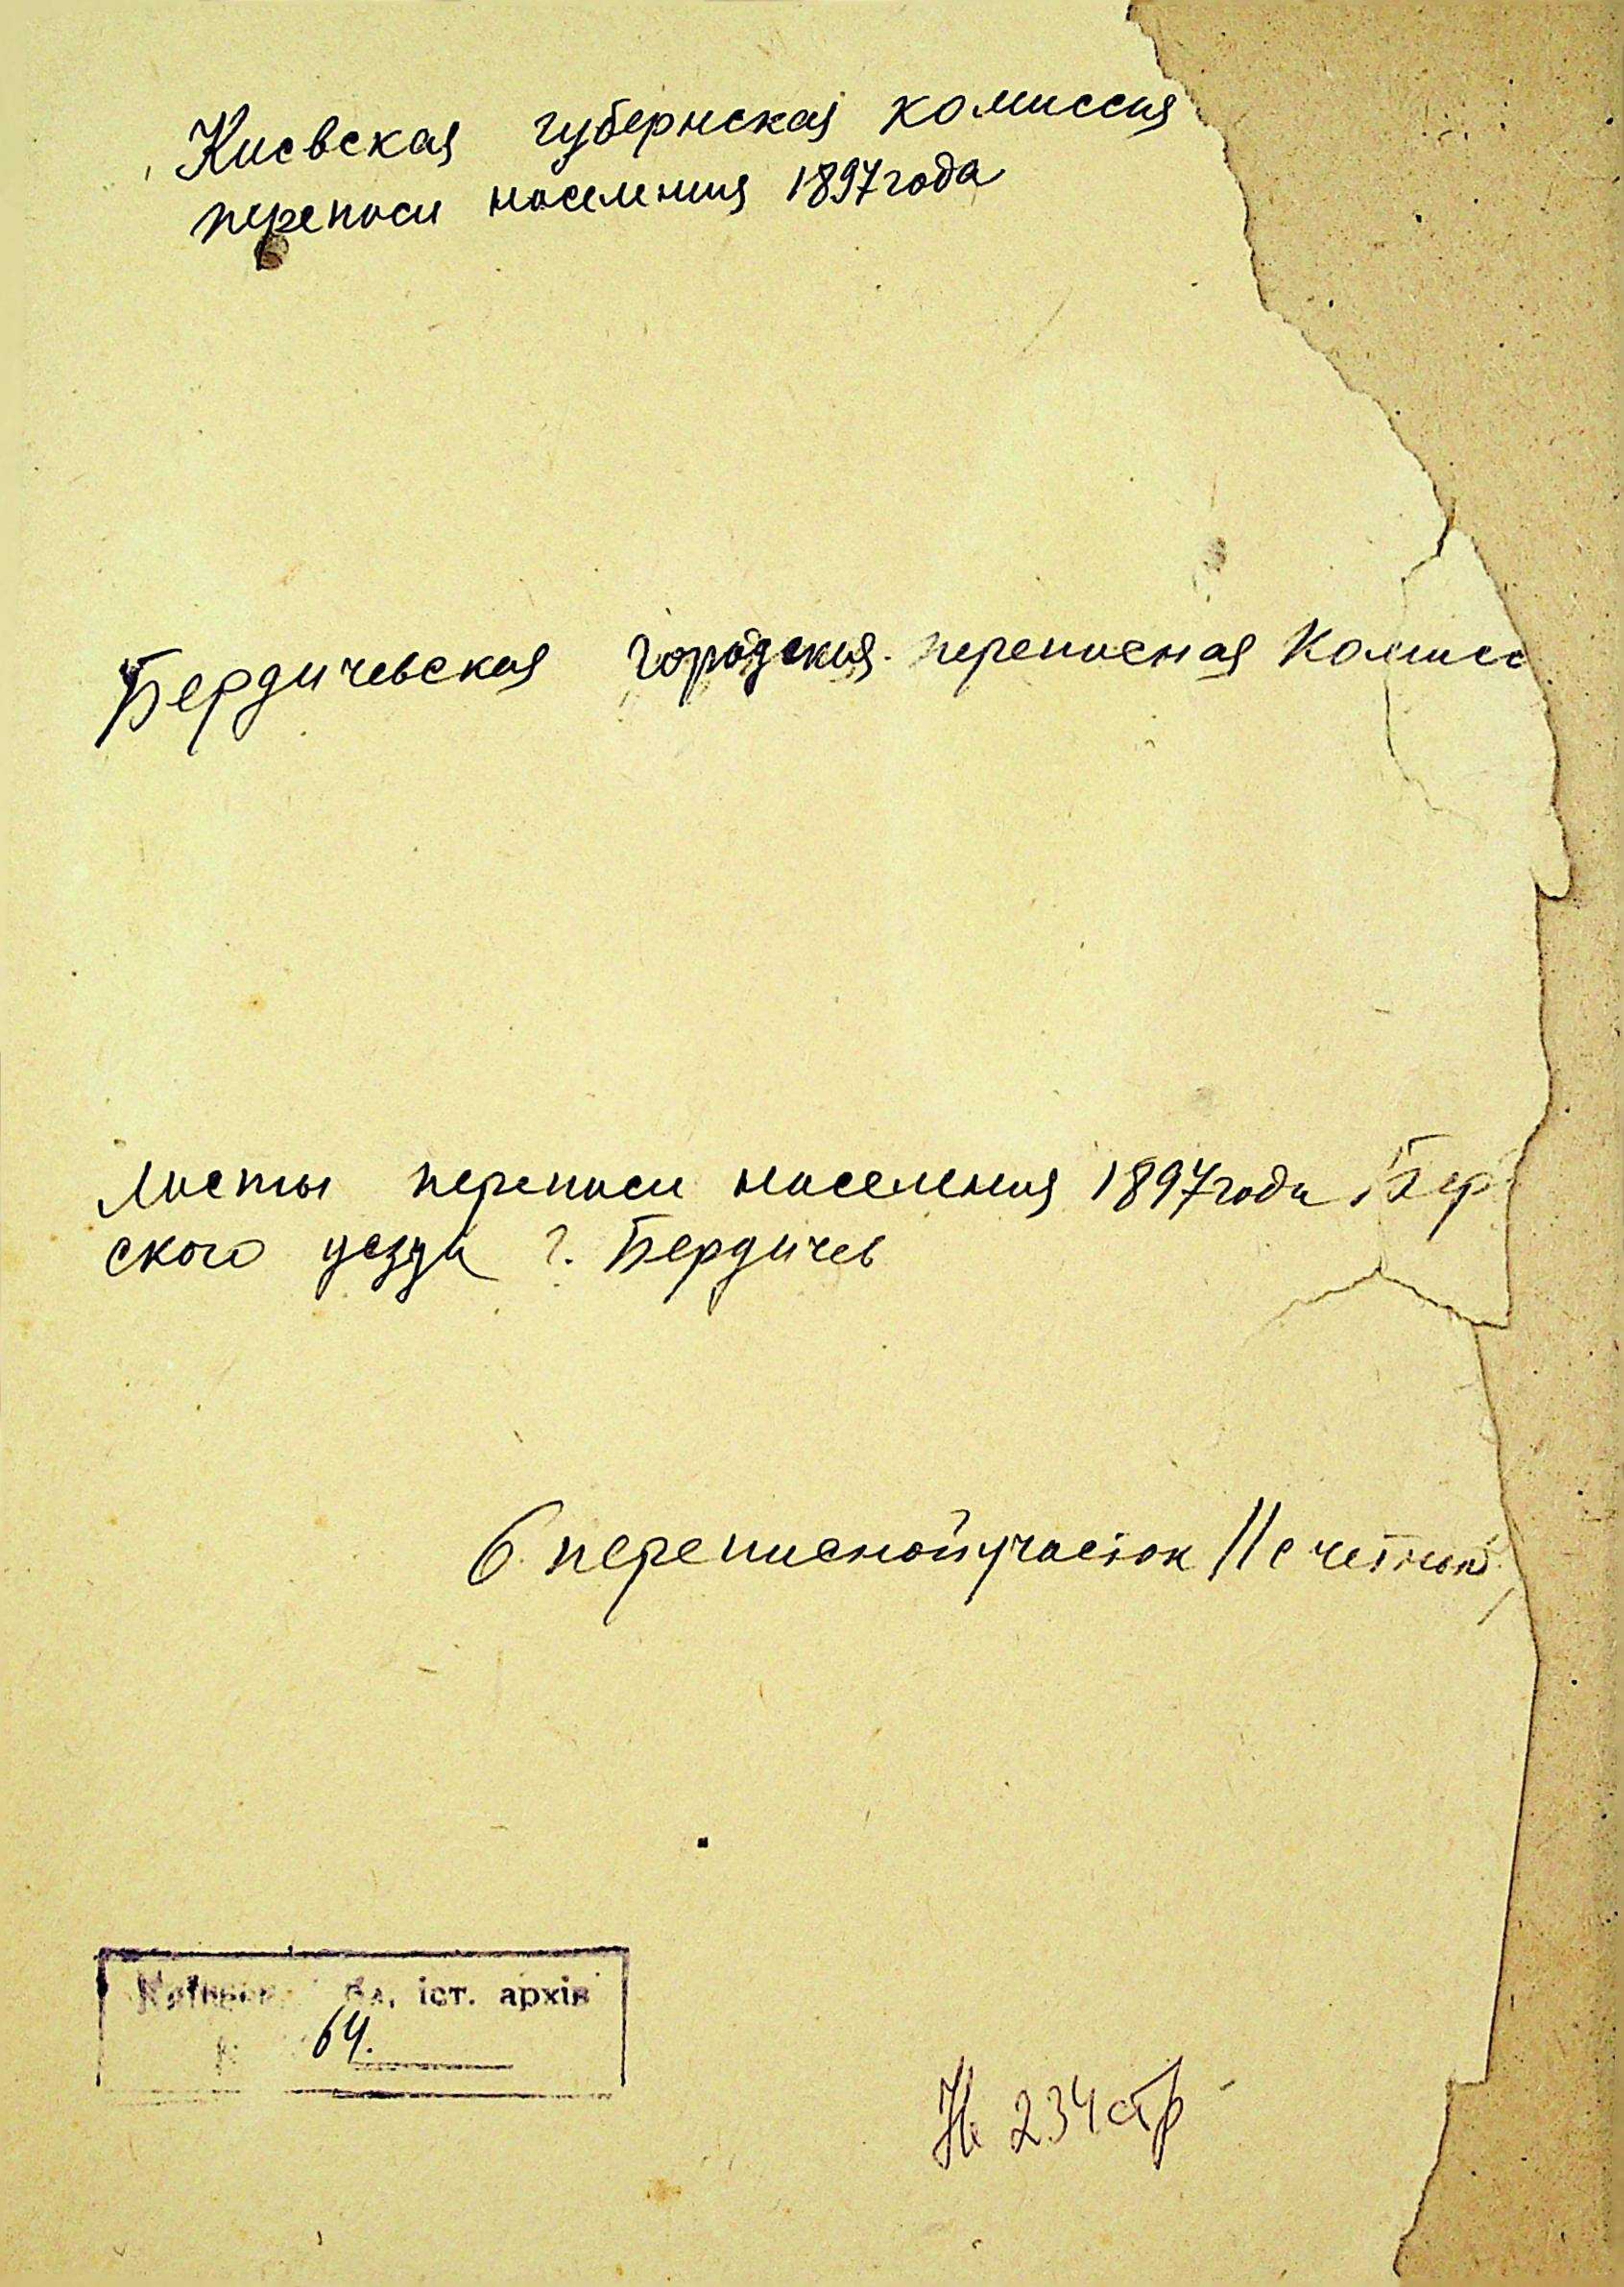 Киевская губернская комиссия
переписи населения 1897 года
Бердичевская городская переписная Комисс
Листы переписи населения 1897 года Бер
ского уезда г. Бердичев
6 переписной участок 11 счетный
іст. архів
64.
На 234 стр